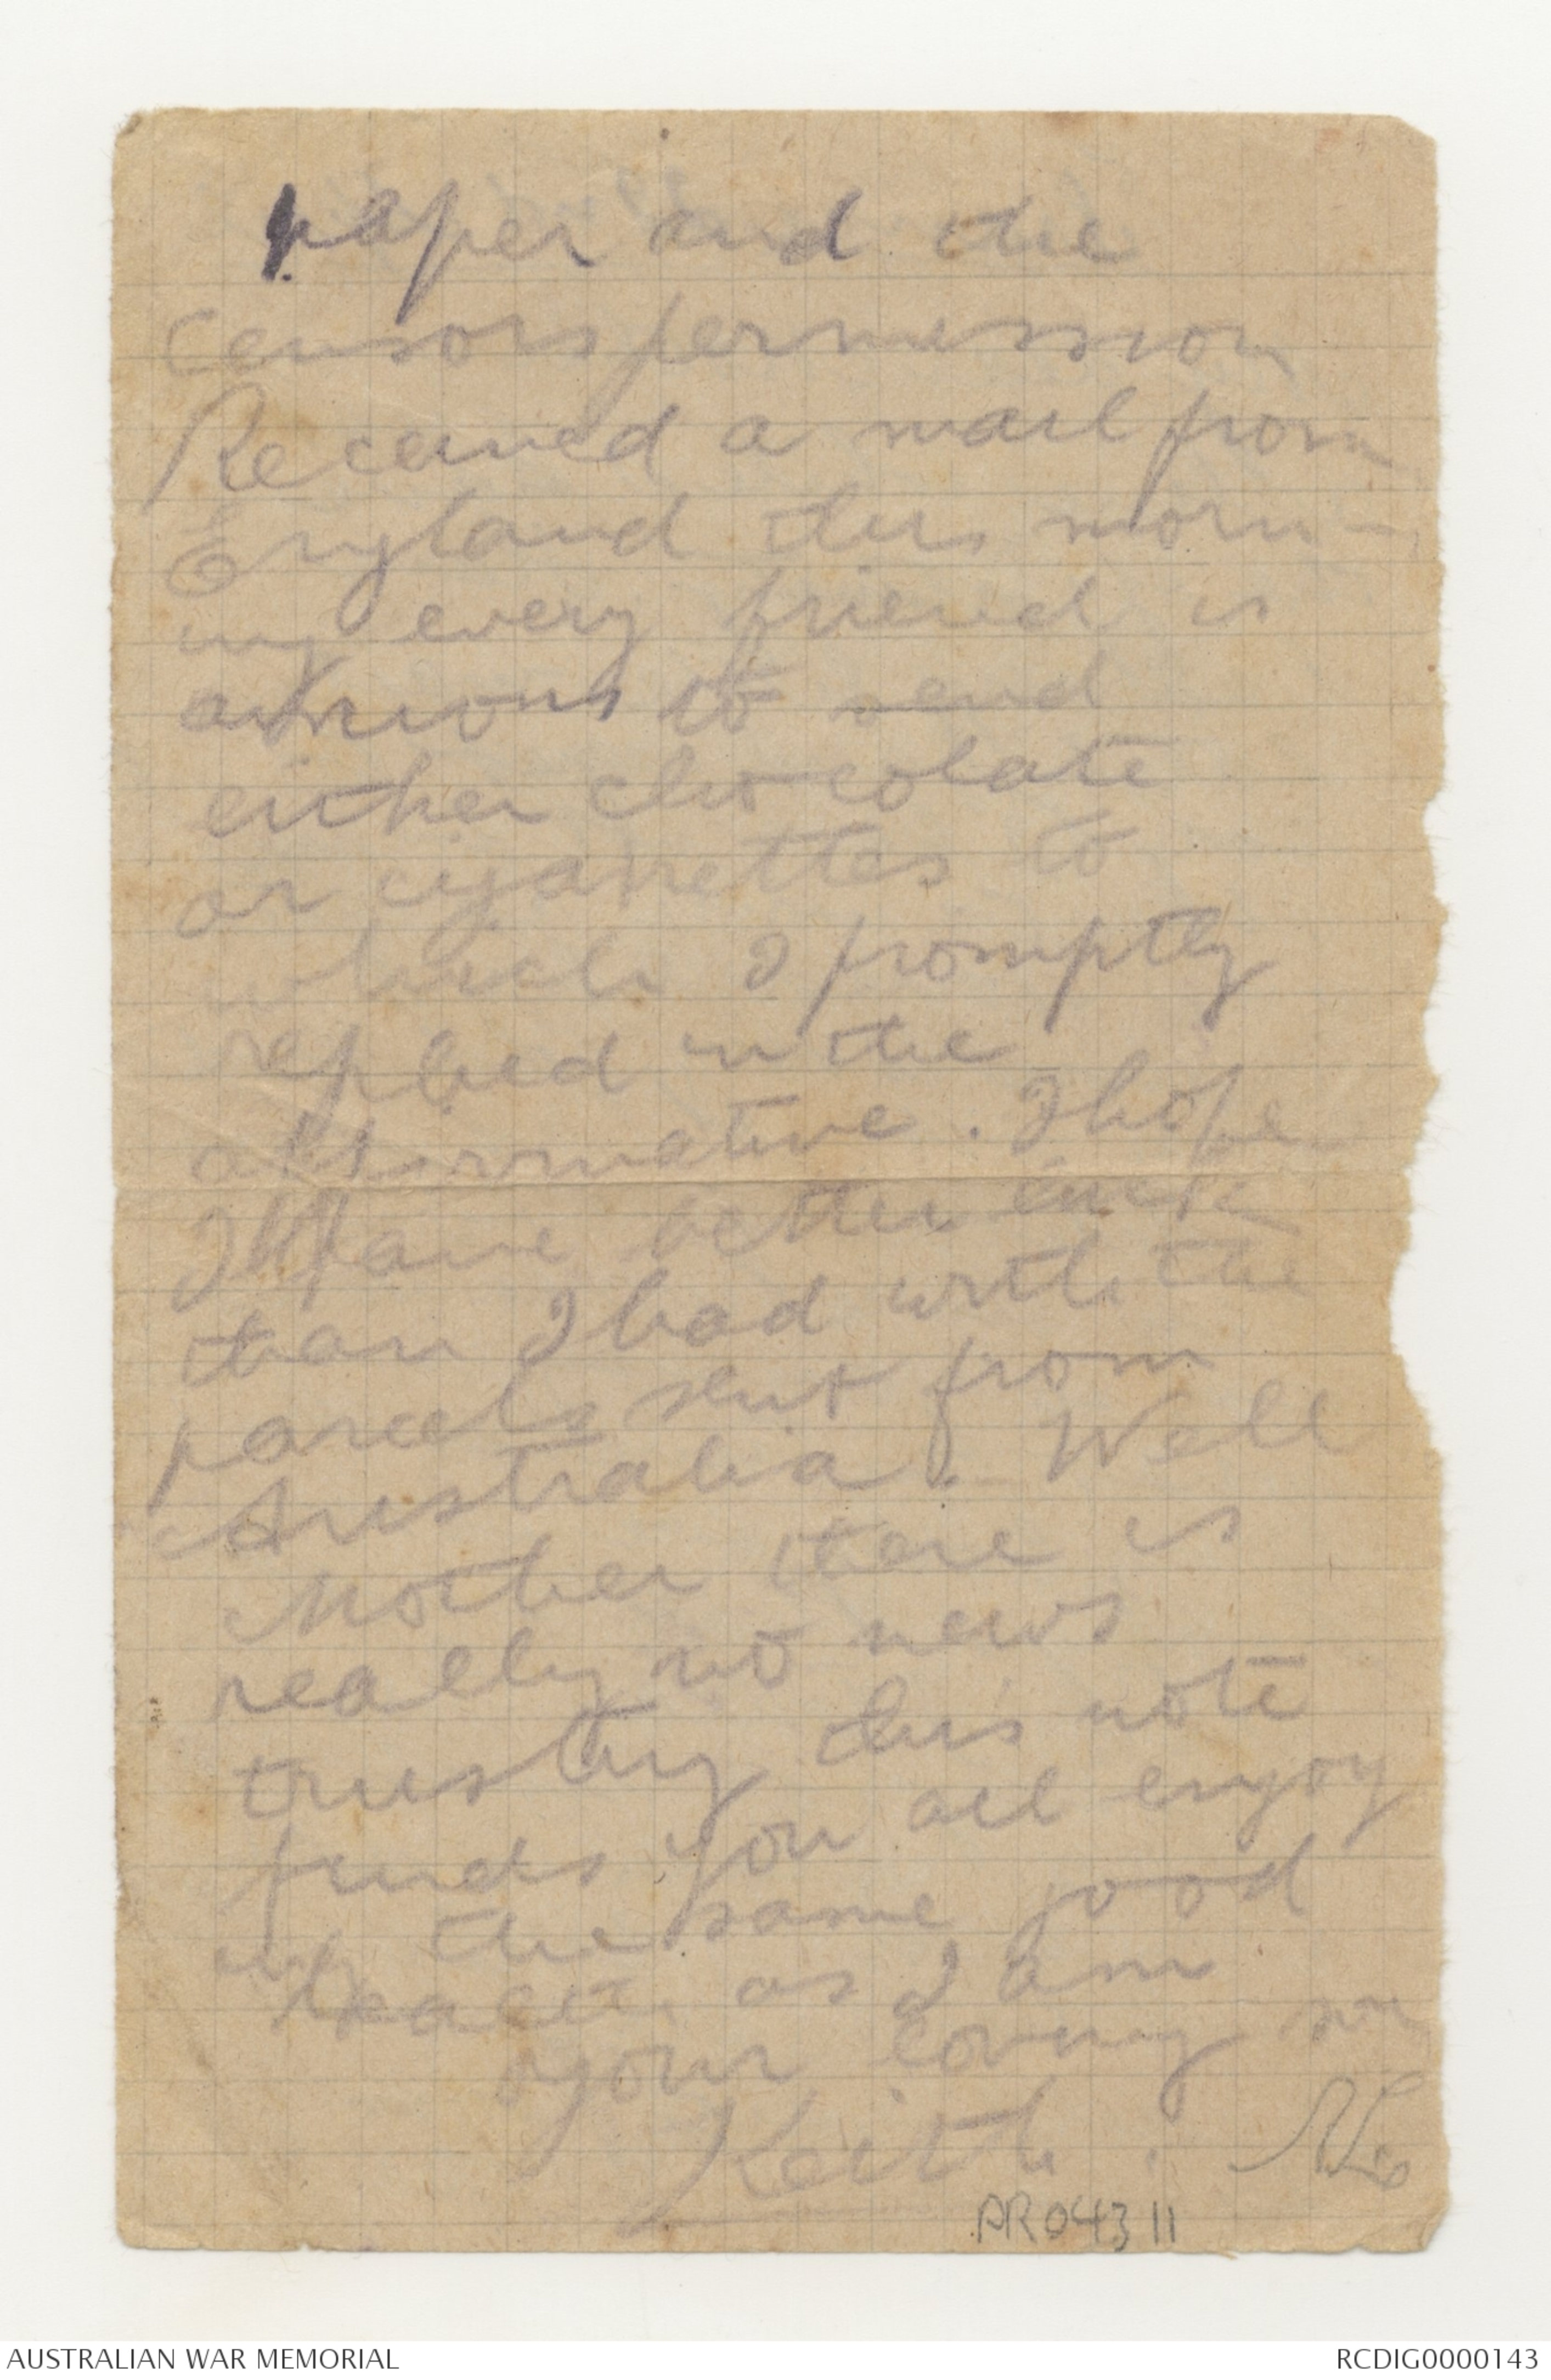 paper and the
censors permission
Received a mail from
England this morn-
ing every friend is
anxious to send
either chocolate
or cigarettes to
which I promptly
replied in the
affirmative. I hope
I have better luck
than I had with the
parcels sent from
Australia. Well
Mother there is
really no news
trusting this note
finds you all enjoy
ing the same good
health as I am
your loving son
Keith.
PR04311
AUSTRALIAN WAR MEMORIAL
RCDIG0000143